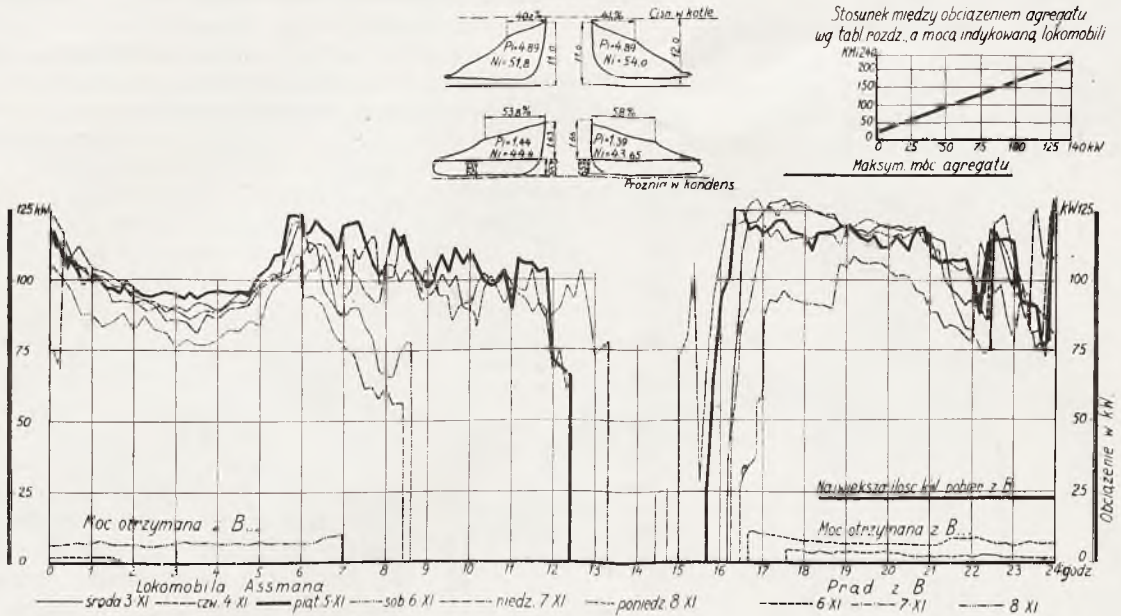 40,2%
41%
Ciśn. w kotle
Pi=4.89
Ni=51,8
11.0
11.0
Pi=4.89
Ni=54.0
12.0
53,8%
58%
Pi=1.44
Ni=44.4
1.63
1.66
Pi=1.39
Ni=43.65
Próżnia w kondens.
Stosunek między obciążeniem agregatu
wg tabl. rozdz., a mocą indykowaną lokomobili
KMi 240
200
150
100
50
0
0 25 50 75 100 125 140 kW
Maksym. moc agregatu
125 kW
100
75
50
25
0
kW 125
100
75
50
25
0
Obciążenie w kW.
Największa ilość kW. pobier. z B.
Moc otrzymana z B...
Moc otrzymana z B...
0 1 2 3 4 5 6 7 8 9 10 11 12 13 14 15 16 17 18 19 20 21 22 23 24 godz.
Lokomobila Assmana
Prąd z B
środa 3·XI czw. 4·XI piąt. 5·XI sob. 6·XI niedz. 7·XI poniedz. 8·XI
6·XI 7·XI 8·XI